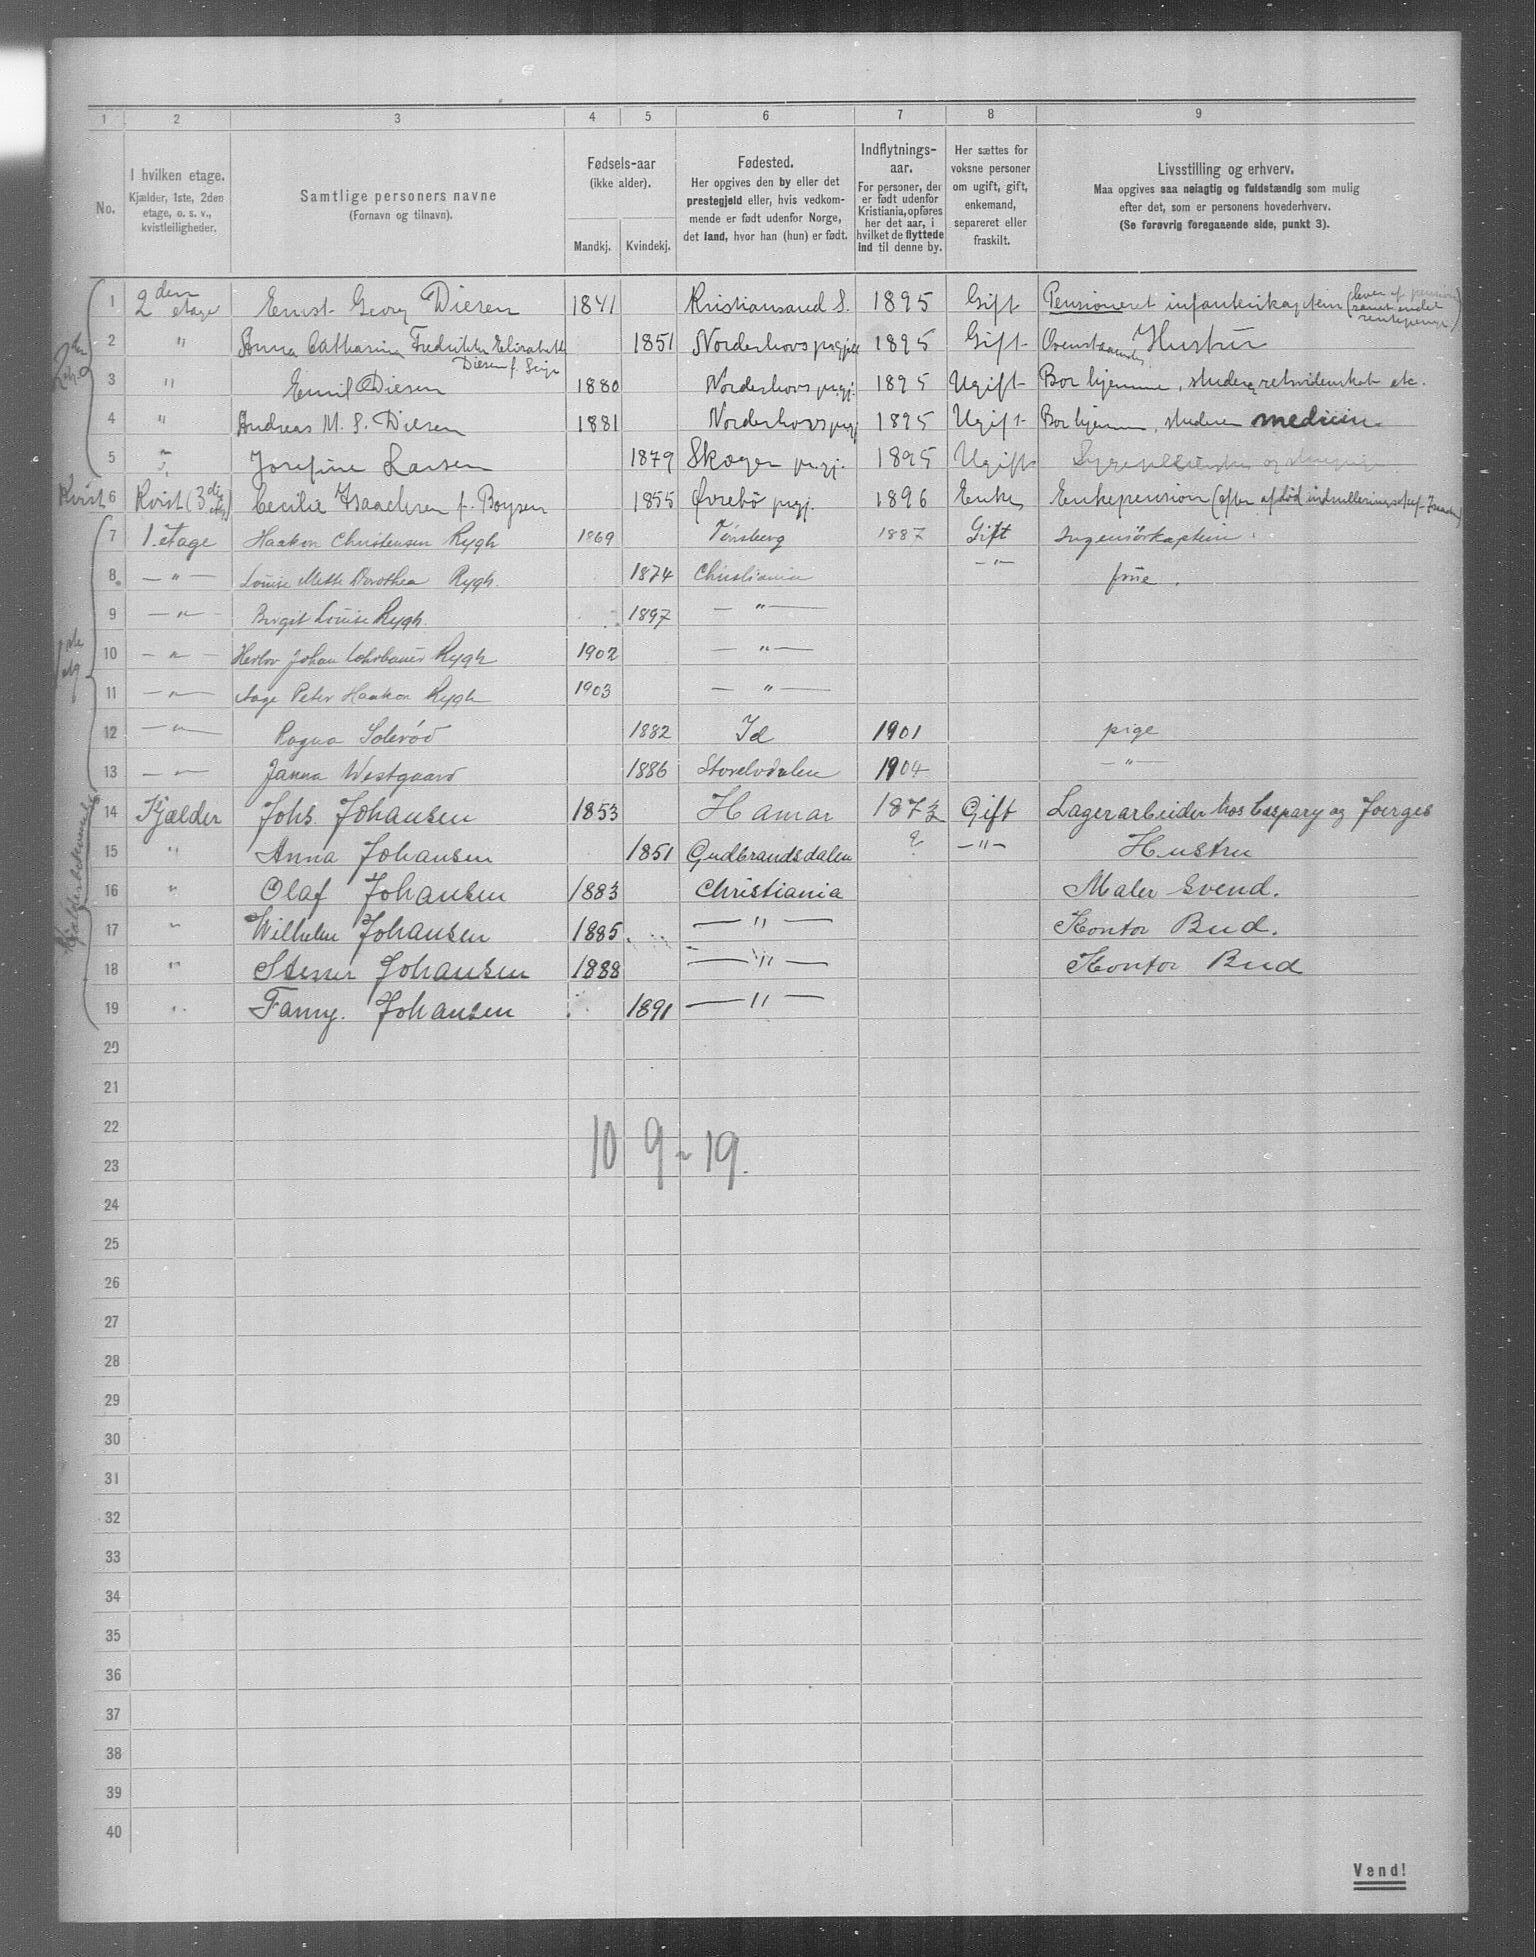 1 2 3 4 5 6 7 8 9
No.
I hvilken etage.
Kjælder, 1ste, 2den
etage, o. s. v.,
kvistleiligheder.
Samtlige personers navne
(Fornavn og tilnavn).
Fødsels-aar
(ikke alder).
Mandkj. Kvindekj.
Fødested.
Her opgives den by eller det
prestegjeld eller, hvis vedkom-
mende er født udenfor Norge,
det land, hvor han (hun) er født.
Indflytnings-
aar.
For personer, der
er født udenfor
Kristiania, opføres
her det aar, i
hvilket de flyttede
ind til denne by.
Her sættes for
voksne personer
om ugift, gift,
enkemand,
separeret eller
fraskilt.
Livsstilling og erhverv.
Maa opgives saa nøiagtig og fuldstændig som mulig
efter det, som er personens hovederhverv.
(Se forøvrig foregaaende side, punkt 3).
1 2den etage Ernst Georg Diesen 1841 Kristianssand S. 1895 Gift Pensioneret infanterikaptein (lever af pension samt andet rentepenge)
2 " Anna Catharina Fredrikke Elisabeth Diesen f. 1851 Norderhovs prgjld 1895 Gift Ovenstaaendes Hustru
3 " Emil Diesen 1880 Norderhovs prgj. 1895 Ugift Bor hjemme, studerer retsvidenskab etc.
4 " Andreas M. S. Diesen 1881 Norderhovs prgj 1895 Ugift Bor hjemme, studerer medicin.
5 " Josefine Larsen 1879 Skoger prgj. 1895 Ugift og
Kvist 6 Kvist (3die etg) Cecilie Isaachsen f. Boysen 1855 Øvrebø prgj. 1896 Enke Enkepension (efter afdød
7 1. etage Haakon Christensen Rygh 1869 Tønsberg 1887 Gift Ingeniørkaptein.
8 — " — Louise Mette Dorothea Rygh. 1874 Christiania — " — frue.
9 — " — Birgit Louise Rygh. 1897 — " —
10 — " — Herlov Johan Rygh 1902 — " —
11 — " — Aage Peter Haakon Rygh 1903 — " —
12 — " — Ragna Solerød 1882 Id 1901 pige
13 — " — Janna Westgaard 1886 Storelvdalen 1904 — " —
14 Kjælder Johs. Johansen 1853 Hamar 1873 Gift Lagerarbeider hos Caspary og Joerges
15 " Anna Johansen 1851 Gudbrandsdalen ? — " — Hustru
16 " Olaf Johansen 1883 Christiania Maler Svend.
17 " Wilhelm Johansen 1885. — " — Kontor Bud.
18 " Stener Johansen 1888 — " — Kontor Bud
19 " Fanny. Johansen 1891 — " —
20
21
22
10 9 - 19.
23
24
25
26
27
28
29
30
31
32
33
34
35
36
37
38
39
40
Vend!